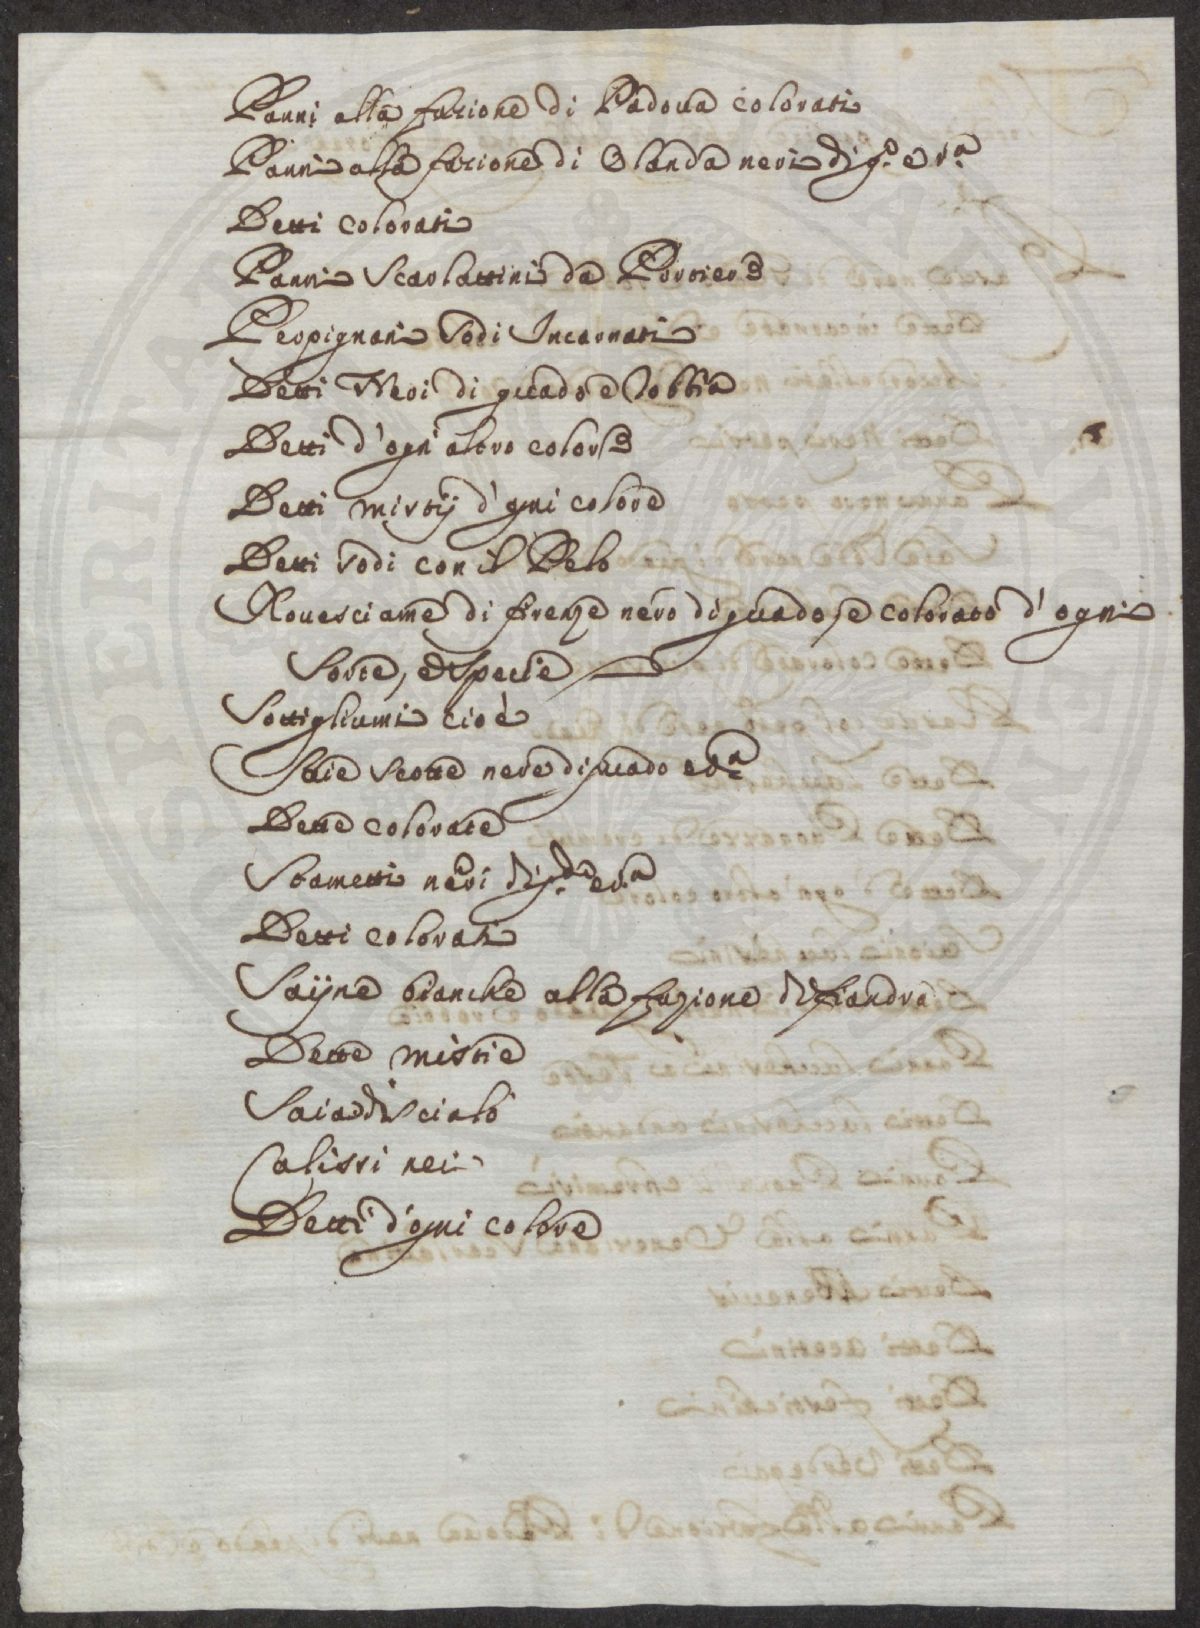 Panni alla fazione di Padoua colorati
Panni alla fazione di Olanda neri di g.º e r.ª
Detti colorati
Panni Scarlattini da Portiere
Perpignani sodi Incarnati
Detti Neri di guado e robbia
Detti d'ogn'altro colore
Detti mistij d'ogni colore
Detti sodi con il Pelo
Rouesciame di firenze nero di guado, e colorato d'ogni
Sorte, e Spetie
Sottigliumi cioè
Saie scotte nere di guado e r.ª
Dette colorate
Stametti neri di g.do e r.ª
Detti colorati
Saijne bianche alla fazione di fiandra
Dette mistie
Saia di Scialò
Calissi neri
Detti d'ogni colore